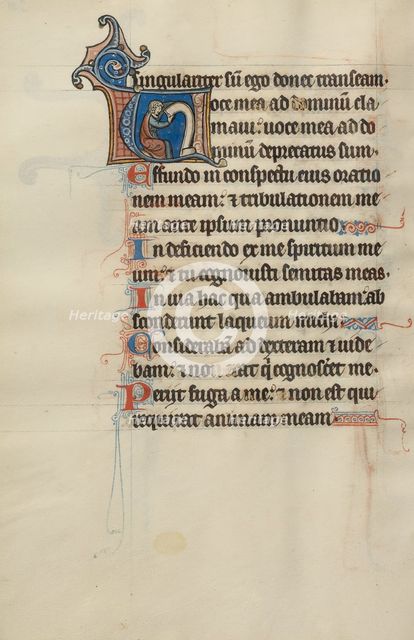 singulariter sū ego donec transeam·
Voce mea ad dominū cla
maui: uoce mea ad do
minū deprecatus sum·
Effundo in conspectu eius oratio
nem meam: ⁊ tribulationem me
am ante ipsum pronuntio
In deficiendo ex me spiritum me
um: ⁊ tu cognouisti semitas meas·
In uia hac qua ambulabam: ab
sconderunt laqueum michi
Considerabā ad dexteram ⁊ uide
bam: ⁊ non erat q̄ cognosc̄et me·
Periit fuga a me: ⁊ non est qui
requirat animam meam
Heritage
Heritage